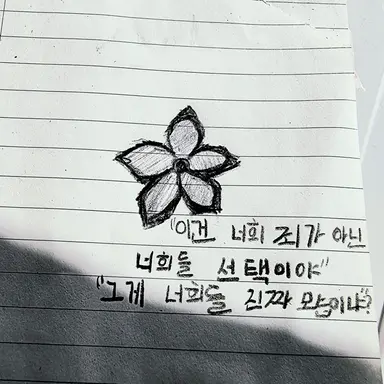 "이건 너희 죄가 아닌
너희들 선택이야"
"그게 너희들 진짜 모습이냐"?